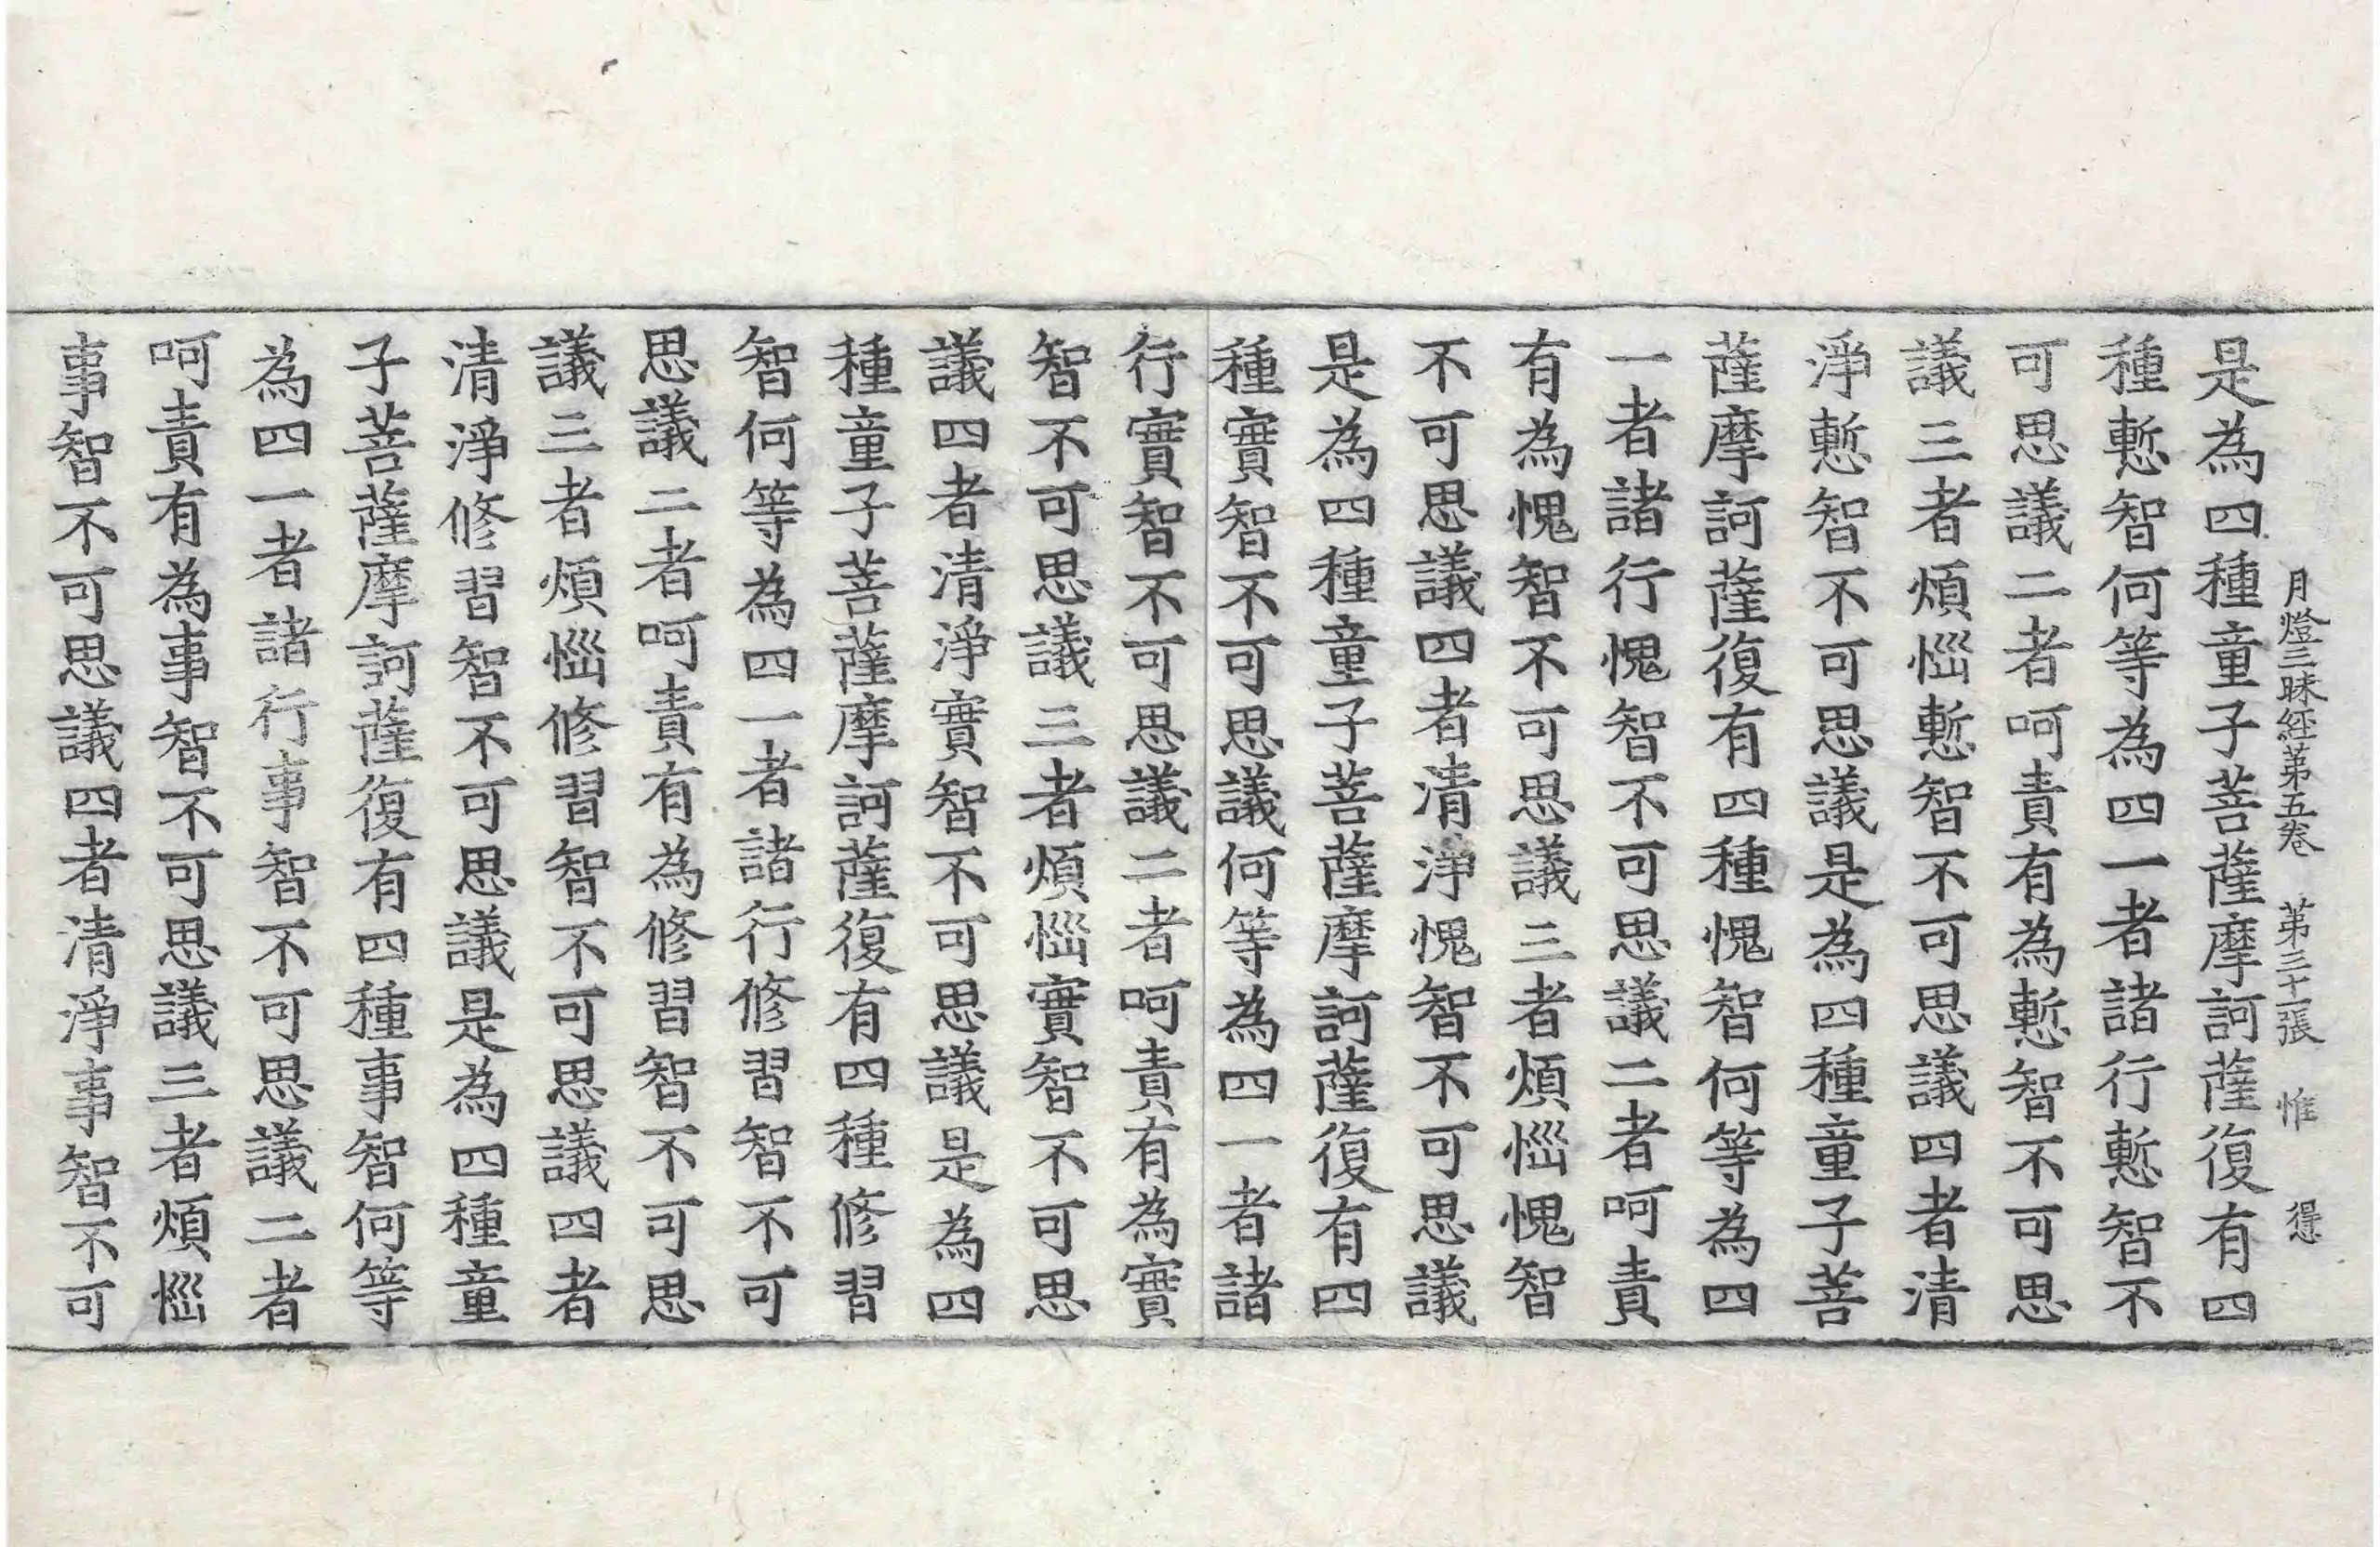 月燈三昧經第五卷　第三十一張　惟　得
是為四種童子菩薩摩訶薩復有四
種慙智何等為四一者諸行慙智不
可思議二者呵責有為慙智不可思
議三者煩惱慙智不可思議四者清
淨慙智不可思議是為四種童子菩
薩摩訶薩復有四種愧智何等為四
一者諸行愧智不可思議二者呵責
有為愧智不可思議三者煩惱愧智
不可思議四者清淨愧智不可思議
是為四種童子菩薩摩訶薩復有四
種實智不可思議何等為四一者諸
行實智不可思議二者呵責有為實
智不可思議三者煩惱實智不可思
議四者清淨實智不可思議是為四
種童子菩薩摩訶薩復有四種修習
智何等為四一者諸行修習智不可
思議二者呵責有為修習智不可思
議三者煩惱修習智不可思議四者
清淨修習智不可思議是為四種童
子菩薩摩訶薩復有四種事智何等
為四一者諸行事智不可思議二者
呵責有為事智不可思議三者煩惱
事智不可思議四者清淨事智不可